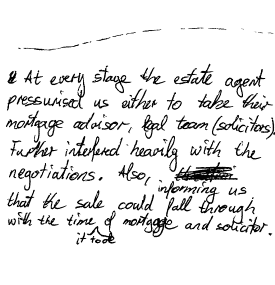 At every stage the estate agent
pressurised us either to take their
mortgage advisor, legal team (solicitors)
Further interfered heavily with the
negotiations. Also, informing us
that the sale could fall through
with the time it took of mortgage and solicitor.